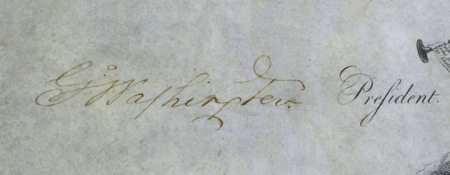 Go Washington Preſident.